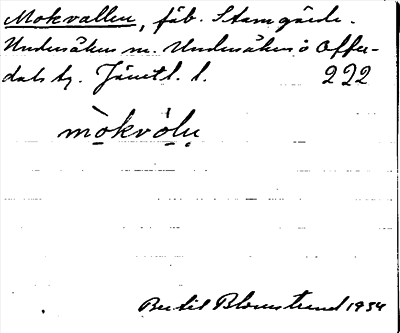 Mokvallen, fäb. Stamgärde.
Undersåkers sn. Undersåkers o Offer-
dals tg. Jämtl. l. 222
mòkvòlụ
Bertil Blomstrand 1934